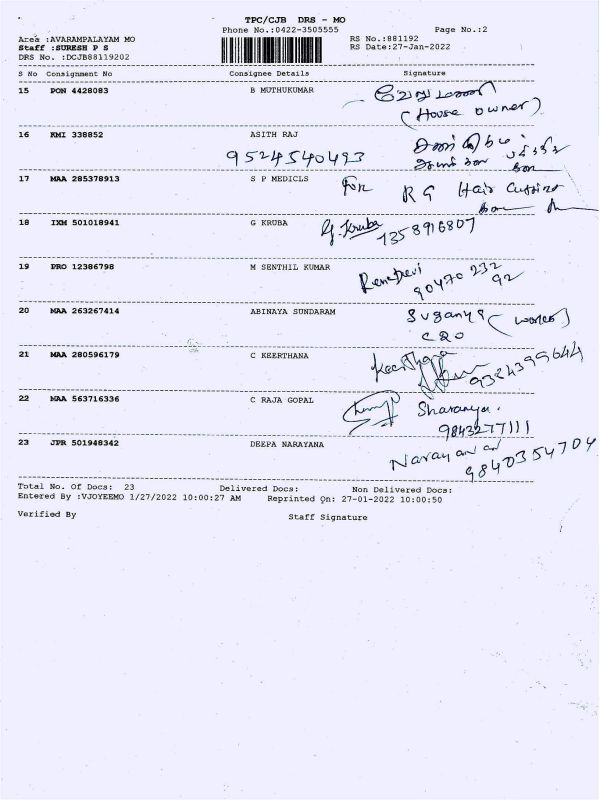 TPC/CJB DRS - MO
Phone No.:0422-3505555 Page No.:2
Area :AVARAMPALAYAM MO RS No.:881192
Staff :SURESH P S RS Date:27-Jan-2022
DRS No. :DCJB88119202
S No Consignment No Consignee Details Signature
15 PON 4428083 B MUTHUKUMAR
(House owner)
16 KMI 338852 ASITH RAJ
9524540493
17 MAA 285378913 S P MEDICLS For R G Hair Cutting
18 IXM 501018941 G KRUBA G. Kruba
7358916807
19 PRO 12386798 M SENTHIL KUMAR
90470 232
92
20 MAA 263267414 ABINAYA SUNDARAM Suganya
21 MAA 280596179 C KEERTHANA Keerthana
9324399644
22 MAA 563716336 C RAJA GOPAL Sharanya.
9843277111
23 JPR 501948342 DEEPA NARAYANA Narayanan
9840354704
Total No. Of Docs: 23 Delivered Docs: Non Delivered Docs:
Entered By :VJOYEEMO 1/27/2022 10:00:27 AM Reprinted On: 27-01-2022 10:00:50
Verified By Staff Signature